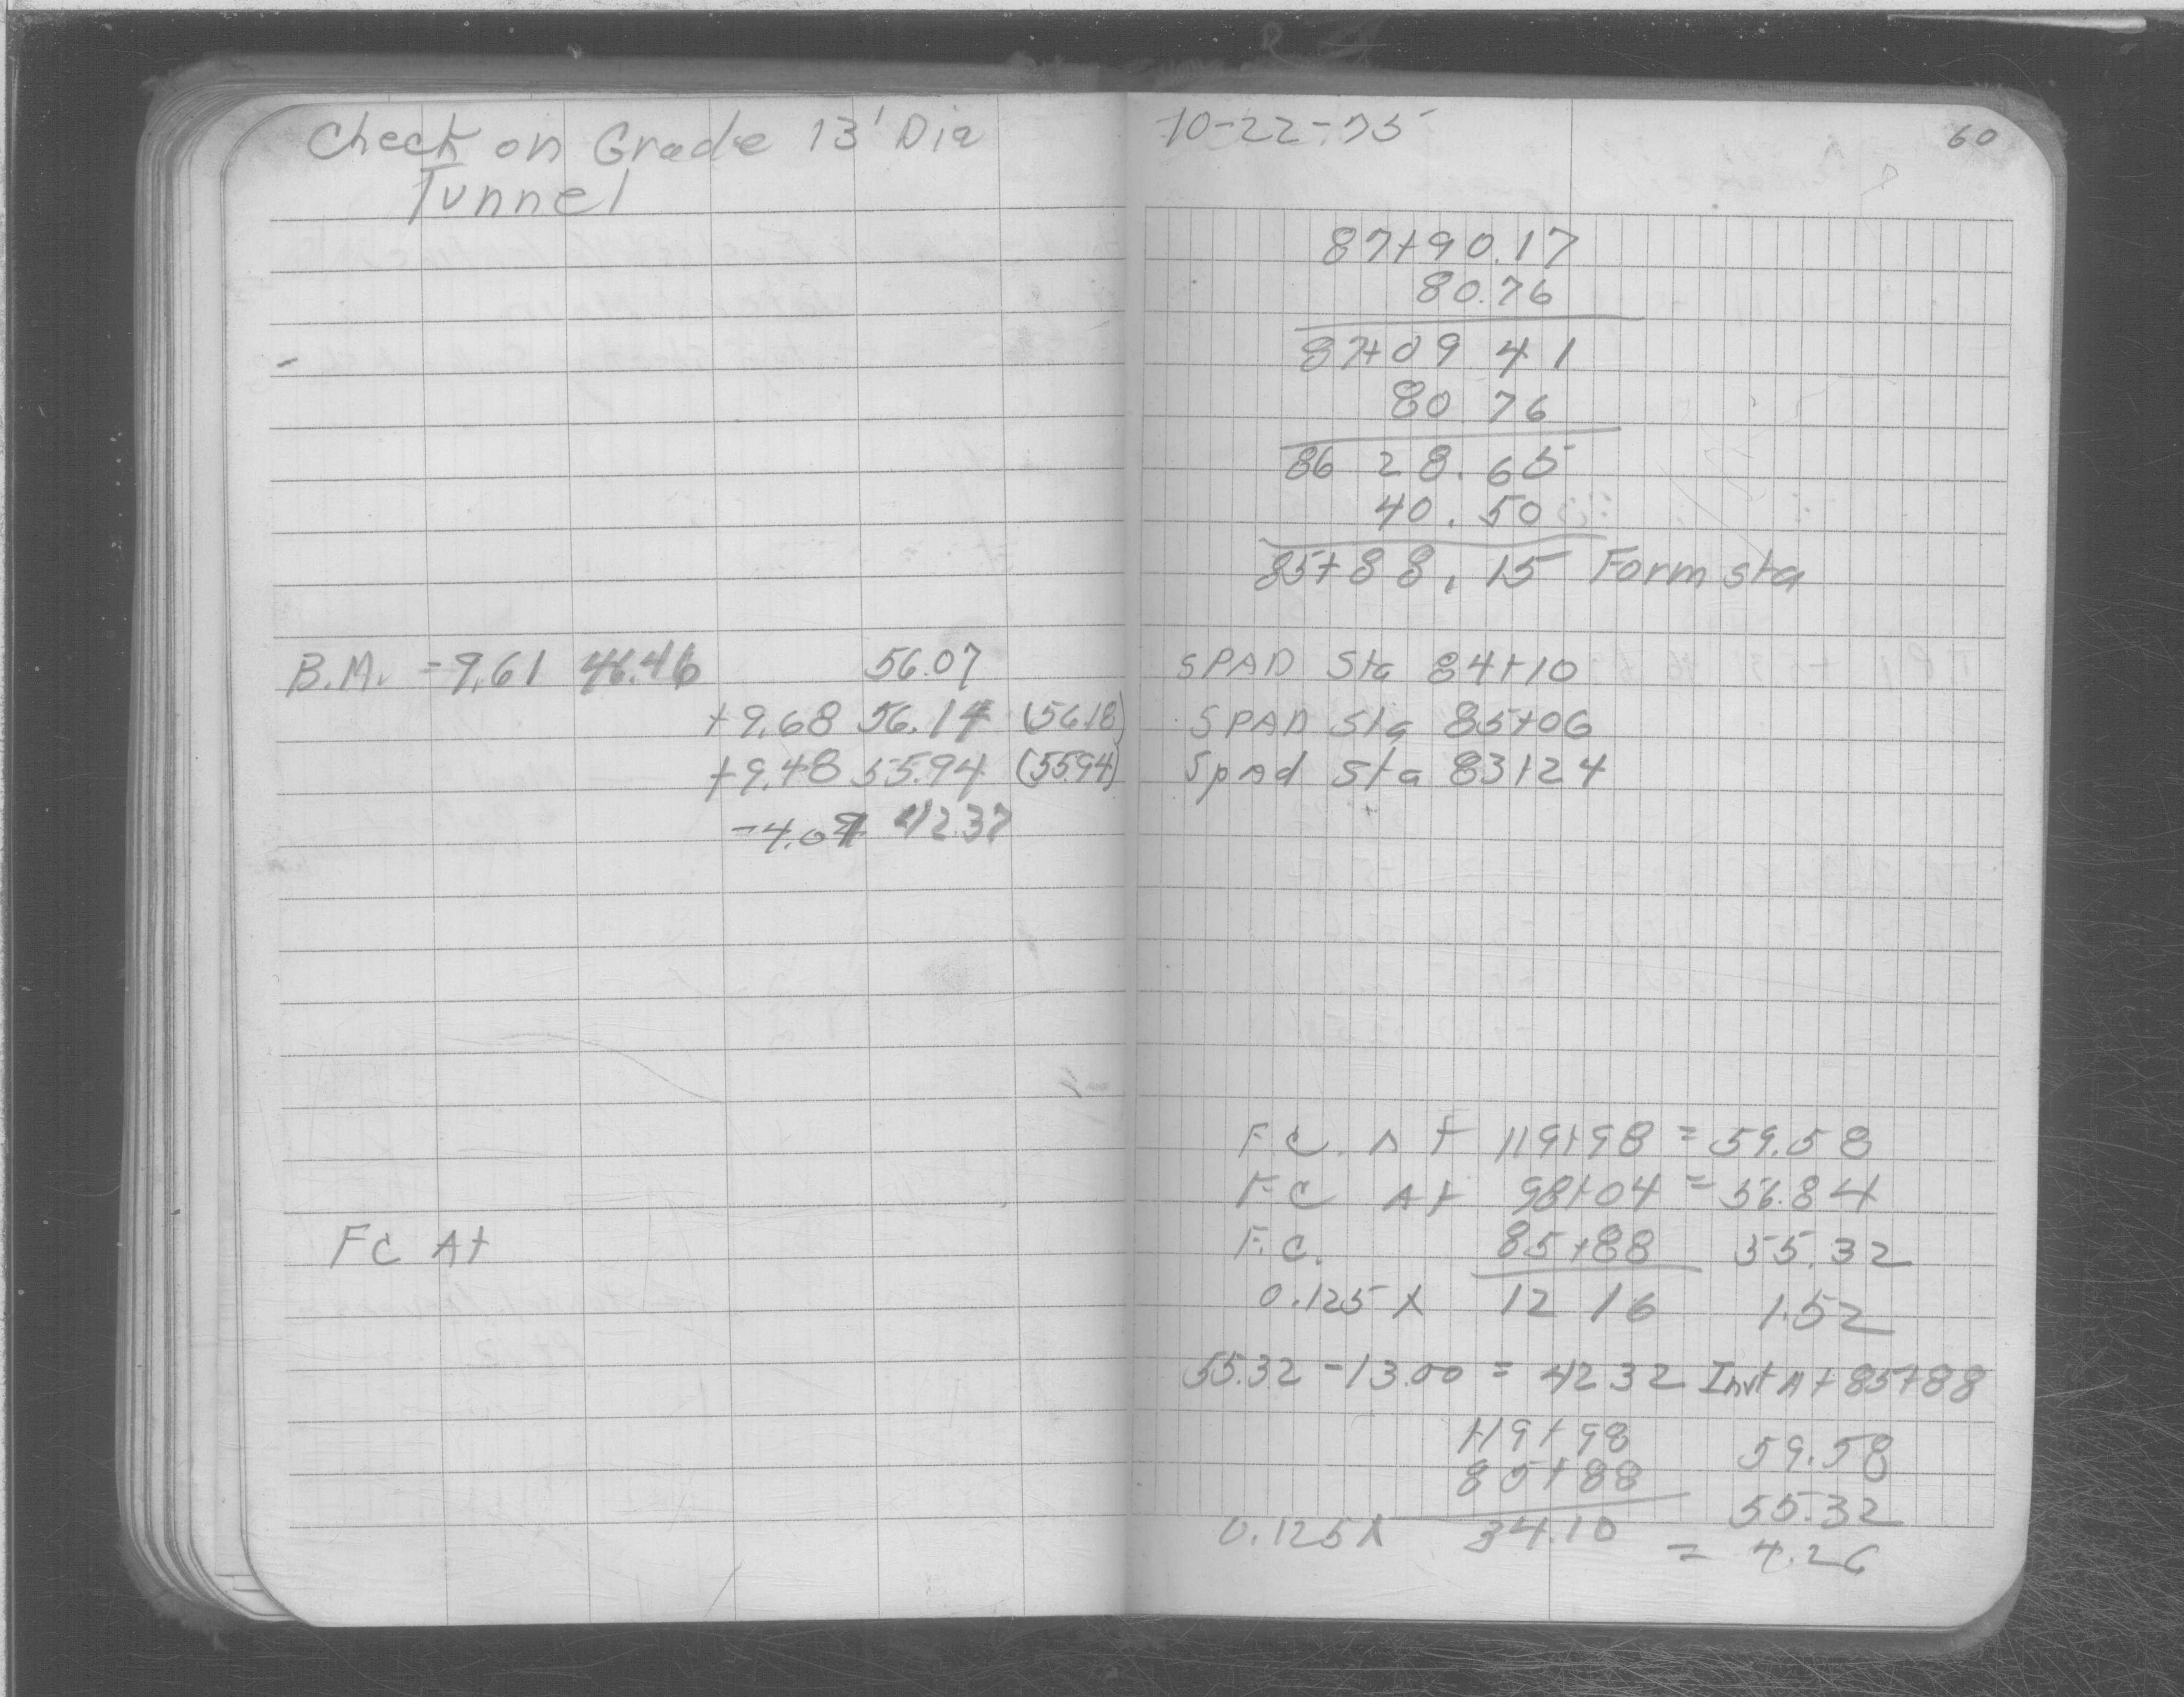 Check on Grade 13' Dia
Tunnel
B.M. -9.61 46.46 56.07
+9.68 56.14 (56.18)
+9.48 55.94 (55.94)
42.37
FC At
10-22-75
60
87+90.17
80.76
87+09 41
80 76
86 28.65
40.50
85+88.15 Form sta
SPAD Sta 84+10
SPAD Sta 85+06
SpAd Sta 83+24
F.C. At 119+98 = 59.58
FC At 98+04 = 56.84
F.C. 85+88 55.32
0.125 X 12 16 1.52
55.32 - 13.00 = 42 32 Invt At 85+88
119+98 59.58
85+88 55.32
0.125 X 34.10 = 4.26